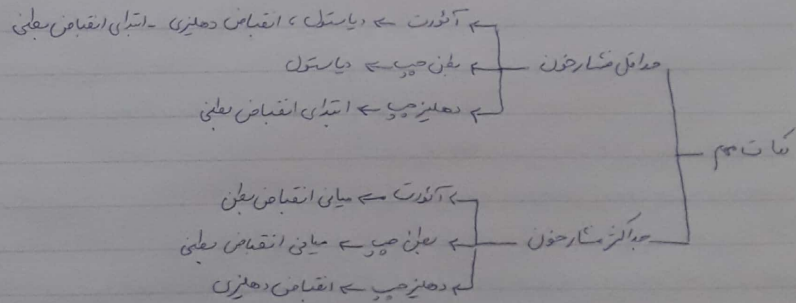 نکات مهم
حداقل فشار خون
← آئورت ← دیاستول، انقباض دهلیزی - ابتدای انقباض بطنی
← بطن چپ ← دیاستول
← دهلیز چپ ← ابتدای انقباض بطنی
حداکثر فشار خون
← آئورت ← میانی انقباض بطن
← بطن چپ ← میانی انقباض بطنی
← دهلیز چپ ← انقباض دهلیزی